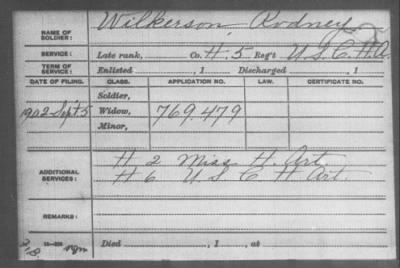 NAME OF SOLDIER: Wilkerson, Rodney
SERVICE: Late rank, Co. H, 5 Reg't U.S.C.H.A.
TERM OF SERVICE: Enlisted , 1 Discharged , 1
DATE OF FILING. CLASS. APPLICATION NO. LAW. CERTIFICATE NO.
Soldier,
1902 Sept 5 Widow, 769.479
Minor,
ADDITIONAL SERVICES: H 2 Miss H. Art.
H 6 U S C H Art.
REMARKS:
Died , 1 , at